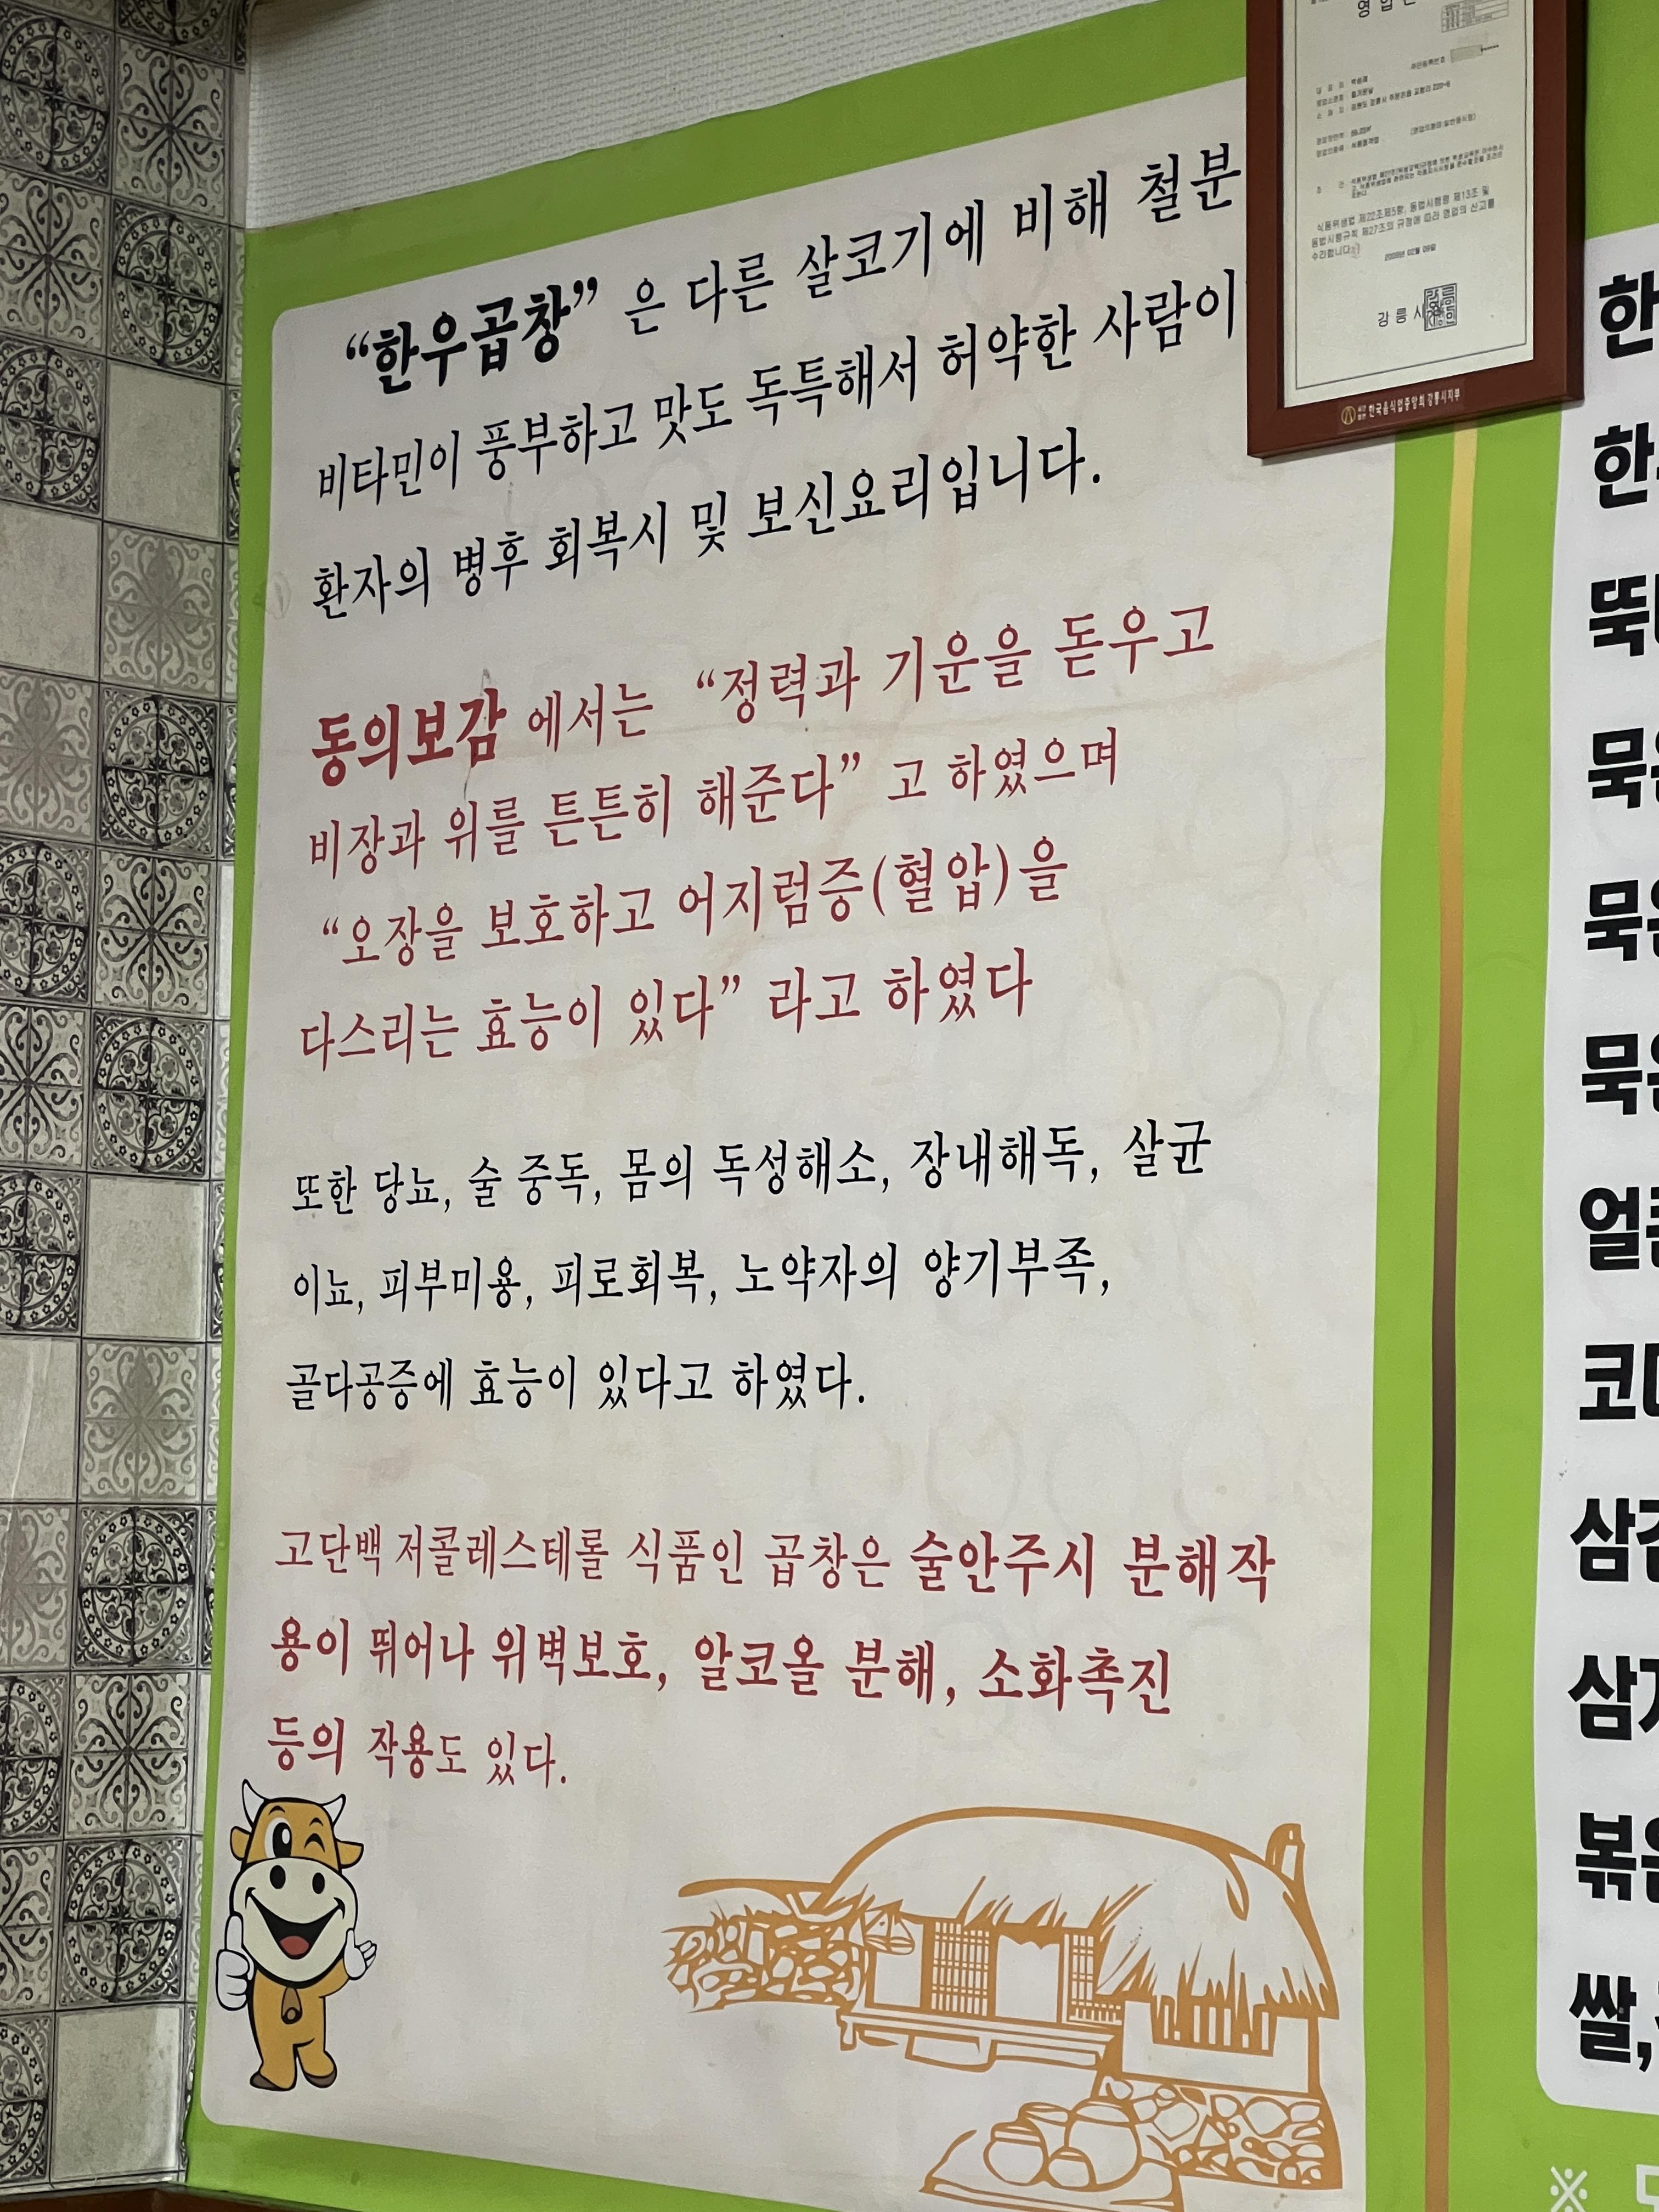 “한우곱창” 은 다른 살코기에 비해 철분
비타민이 풍부하고 맛도 독특해서 허약한 사람이
환자의 병후 회복시 및 보신요리입니다.
동의보감 에서는 “정력과 기운을 돋우고
비장과 위를 튼튼히 해준다” 고 하였으며
“오장을 보호하고 어지럼증(혈압)을
다스리는 효능이 있다” 라고 하였다
또한 당뇨, 술 중독, 몸의 독성해소, 장내해독, 살균
이뇨, 피부미용, 피로회복, 노약자의 양기부족,
골다공증에 효능이 있다고 하였다.
고단백 저콜레스테롤 식품인 곱창은 술안주시 분해작
용이 뛰어나 위벽보호, 알코올 분해, 소화촉진
등의 작용도 있다.
식품위생법 제22조제5항, 동법시행령 제13조 및
동법시행규칙 제27조의 규정에 따라 영업의 신고를
수리합니다.
강릉시
한국음식업중앙회 강릉시지부
한
한
뚝
묵은
묵은
묵은
얼큰
코
삼
삼
볶은
쌀,
※